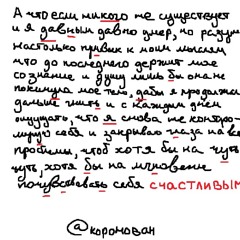 А что если никого не существует
и я давным давно умер, но разум
настолько привык к моим мыслям
что до последнего держит мое
сознание и душу лишь бы она не
покинула мое тело, дабы я продолжал
дальше жить и с каждым днем
ощущать, что я снова не контро-
лирую себя и закрываю глаза на все
проблемы, чтоб хотя бы на чуть
чуть, хотя бы на мгновение
почувствовать себя счастливым
@коронован